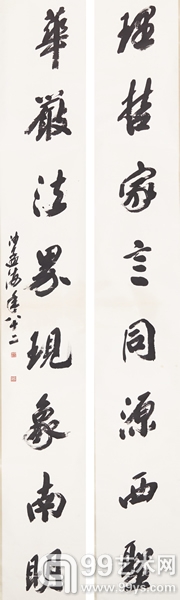 理哲家言同源西聖
華嚴法界現象南明
沙孟海年八十二
99艺术网
www.99ys.com